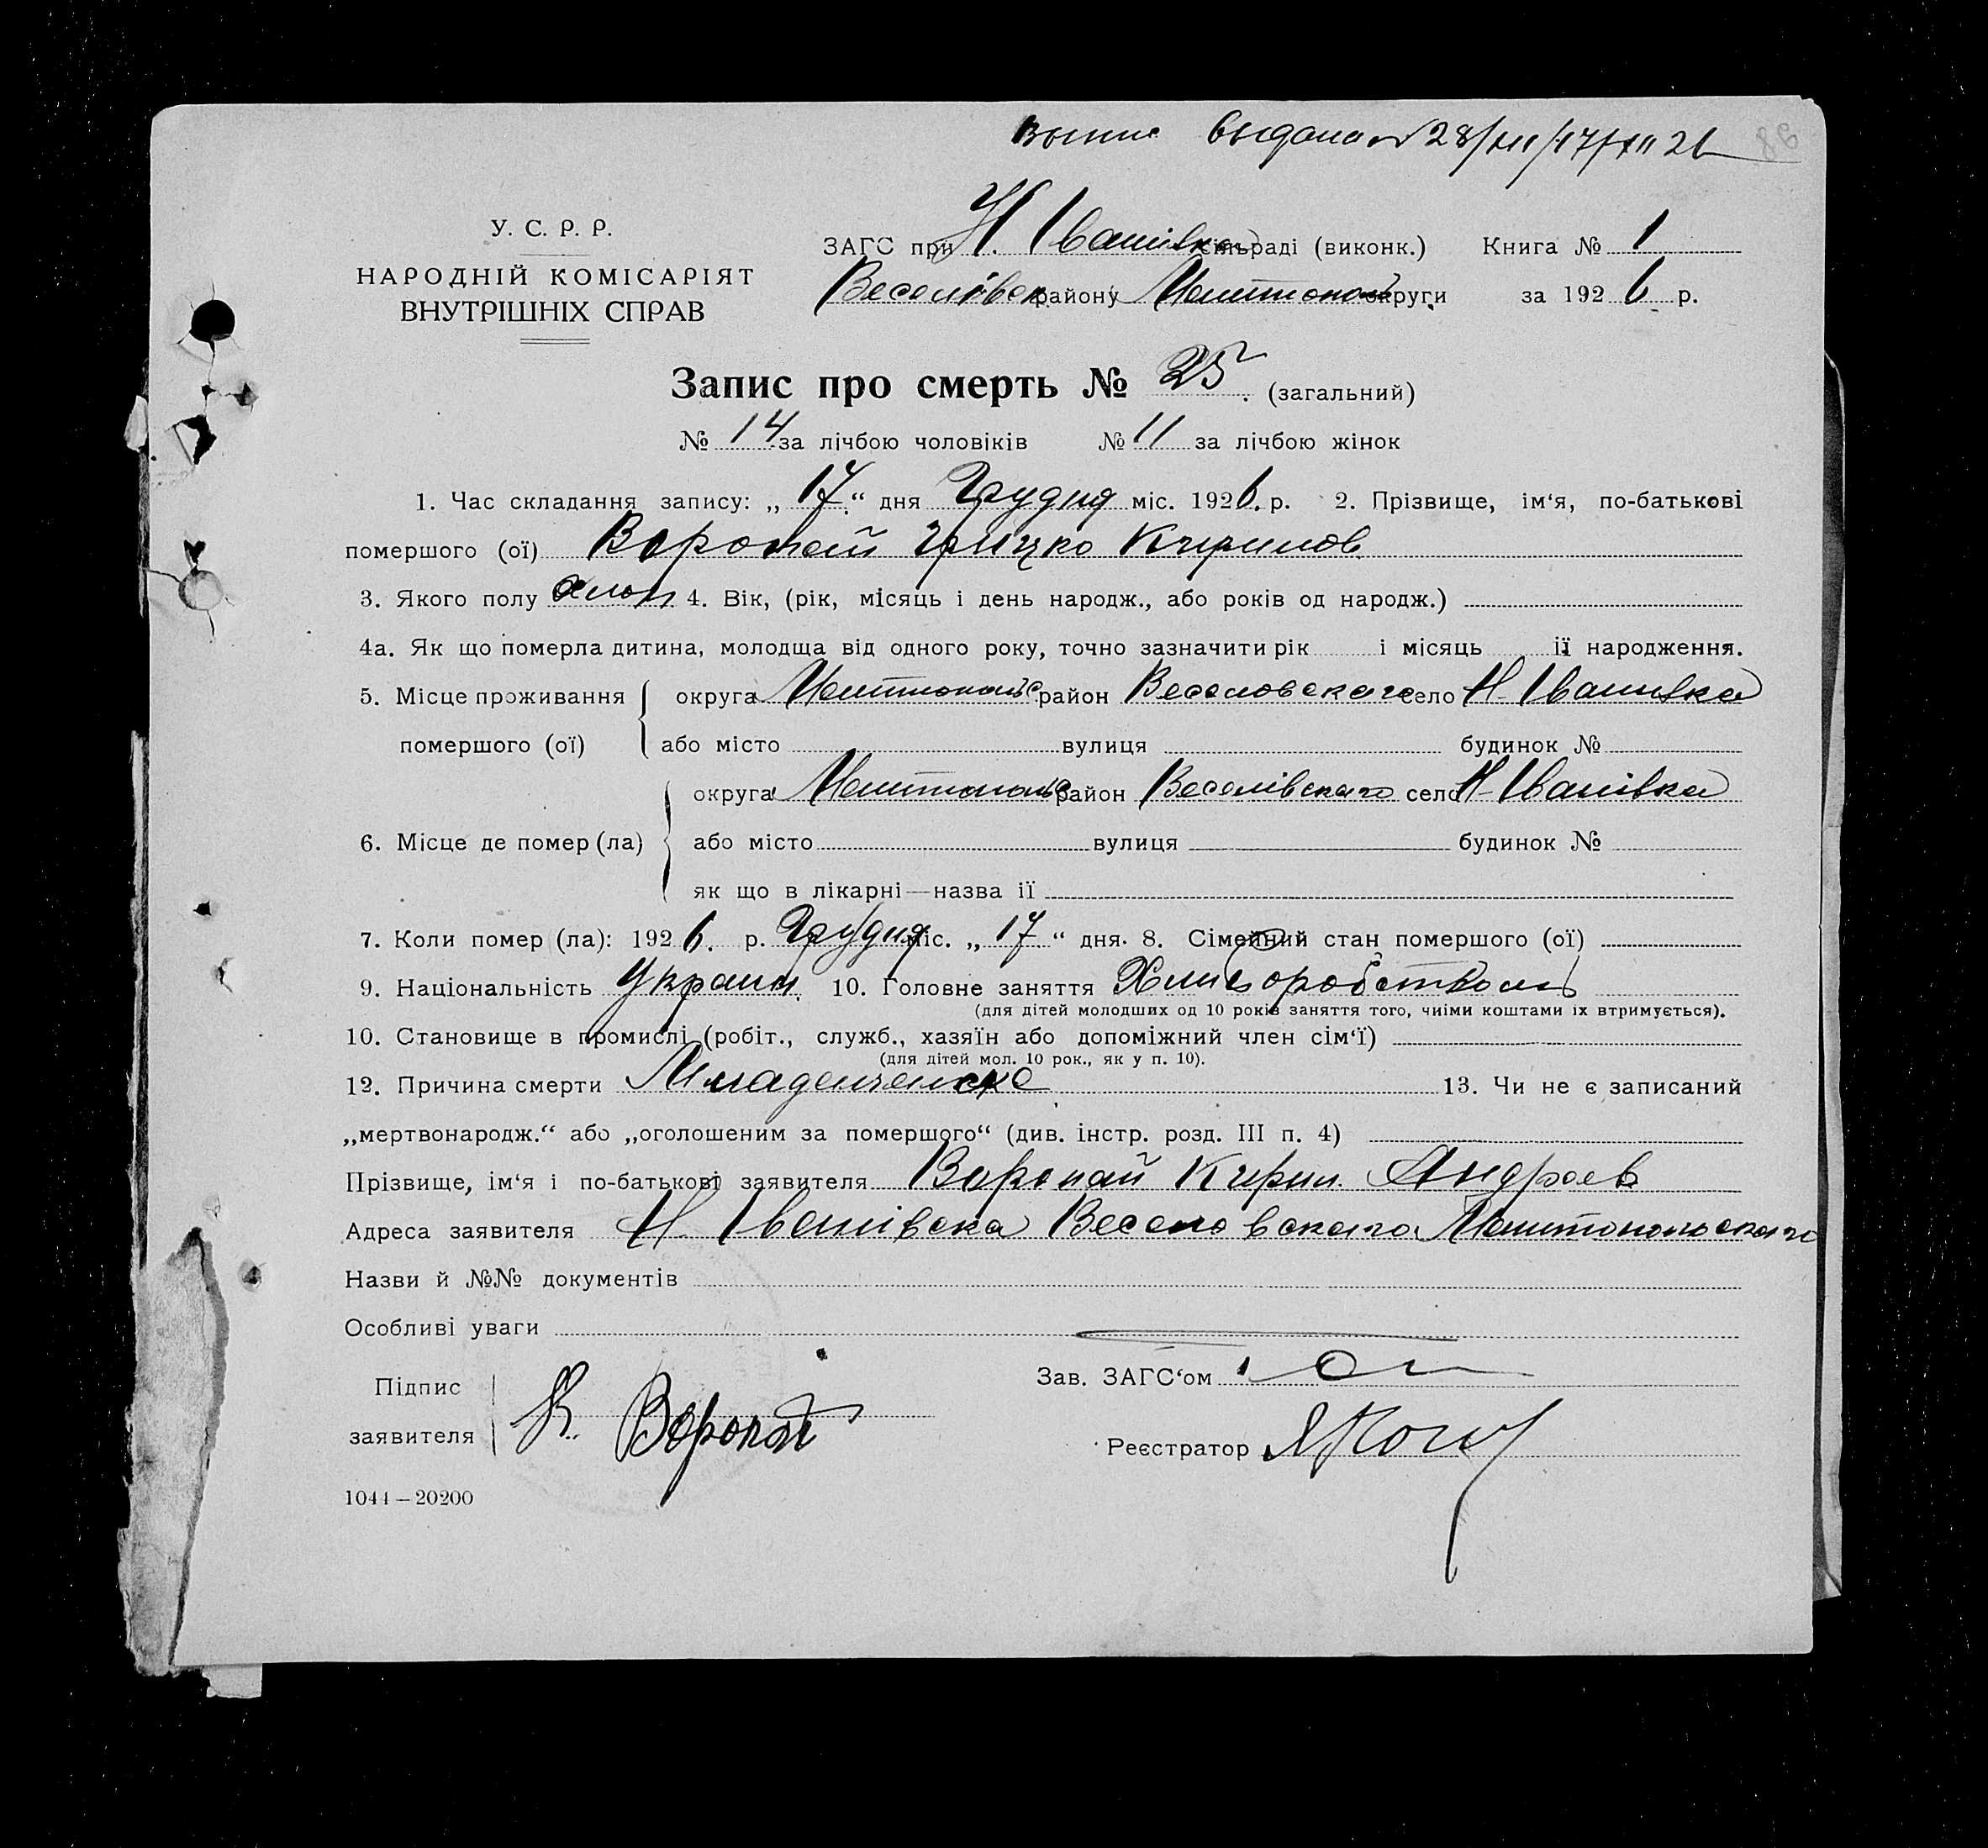 Выпис выдана 28/XII/17/XII 26
У. С. Р. Р.
НАРОДНІЙ КОМІСАРІЯТ
ВНУТРІШНІХ СПРАВ
ЗАГС при Н. Іванівка сільраді (виконк.) Книга № 1
Веселівськ району Мелитополь округи за 1926 р.
Запис про смерть № 25. (загальний)
№ 14 за лічбою чоловіків № 11 за лічбою жінок
1. Час складання запису: „17“ дня Грудня міс. 1926. р. 2. Прізвище, ім‘я, по-батькові
помершого (ої) Воропай Грицко Кирилов
3. Якого полу хлоп 4. Вік, (рік, місяць і день народж., або років од народж.)
4а. Як що померла дитина, молодща від одного року, точно зазначити рік і місяць її народження.
5. Місце проживання округа Мелитопольс район Веселовскаго село Н-Іванівка
помершого (ої) або місто вулиця будинок №
округа Мелитопольс район Веселівскаго село Н-Іванівка
6. Місце де помер (ла) або місто вулиця будинок №
як що в лікарні—назва її
7. Коли помер (ла): 1926. р. Грудня міс. „17“ дня. 8. Сімейний стан помершого (ої)
9. Національність Украин. 10. Головне заняття
(для дітей молодших од 10 років заняття того, чиїми коштами їх втримується).
10. Становище в промислі (робіт., служб., хазяїн або допоміжний член сім‘ї)
(для дітей мол. 10 рок., як у п. 10).
12. Причина смерти Младенческе 13. Чи не є записаний
„мертвонародж.“ або „оголошеним за помершого“ (див. інстр. розд. III п. 4)
Прізвище, ім‘я і по-батькові заявителя Воропай Кирил Андреев
Адреса заявителя Н. Іванівска Веселовскаго Мелитопольскаго
Назви й №№ документів
Особливі уваги
Підпис
заявителя К. Воропай
Зав. ЗАГС‘ом
Реєстратор
1044—20200